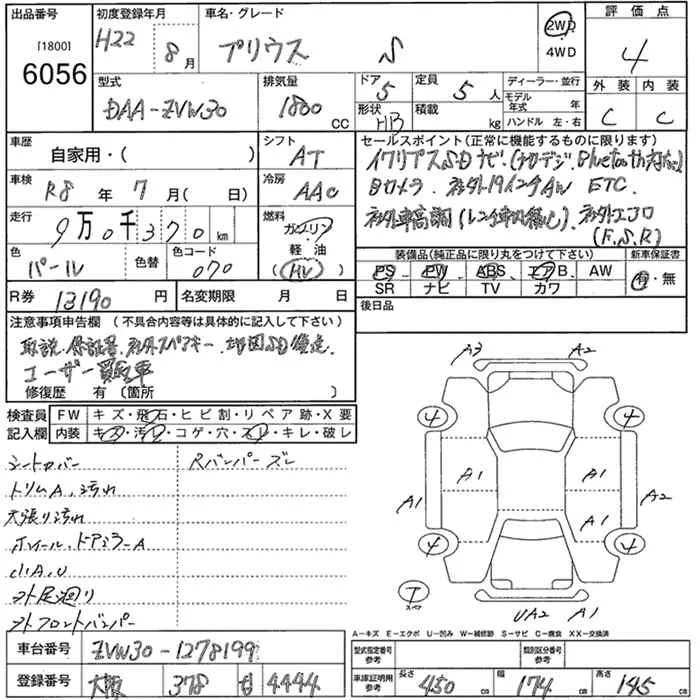 出品番号 初度登録年月 車名・グレード 評価点
[1800] H22 8月 プリウス S 2WD 4
6056 4WD
型式 排気量 ドア 5 定員 5 人 ディーラー・並行 外装 内装
DAA-ZVW30 1800 CC 形状 HB 積載 kg モデル年式 年 C C
ハンドル 左・右
車歴 シフト セールスポイント(正常に機能するものに限ります)
自家用・( ) AT イクリプスSDナビ
車検 冷房 Bカメラ. 社外19インチAW ETC
R8年 7月( 日) AAC
走行 燃料
9万0千370 km ガソリン 社外エアロ
軽油 (F.S.R)
色 色替 色コード HV 装備品(純正品に限り丸をつけて下さい) 新車保証書
パール 070 PS PW ABS エアB AW 有・無
SR ナビ TV カワ
R券 13190円 名変期限 月 日 後日品
注意事項申告欄 (不具合内容等は具体的に記入して下さい)
取説.保証書.社外スペアキー.地図SD欠品.
ユーザー買取車
修復歴 有 〔箇所 〕
検査員 FW キズ・飛石・ヒビ割・リペア跡・X要
記入欄 内装 キズ・汚レ・コゲ・穴・スレ・キレ・破レ
シートカバー Rバンパーズレ
トリムA.汚れ
天張り汚れ
ホイール.ドアミラーA
小A.U
ヲト足廻り
ヲトフロントバンパー
A3 A2
4 4
A1 A1
A1 A2
A1
4 4
T
スペア
UA2 A1
A-キズ E-エクボ U-凹み W-補修跡 S-サビ C-腐食 XX-交換済
車台番号 ZVW30-1278199 型式指定番号 参考 類別区分番号 参考
登録番号 大阪 378 4444 車庫証明用 参考 長さ 450 cm 幅 174 cm 高さ 145 cm